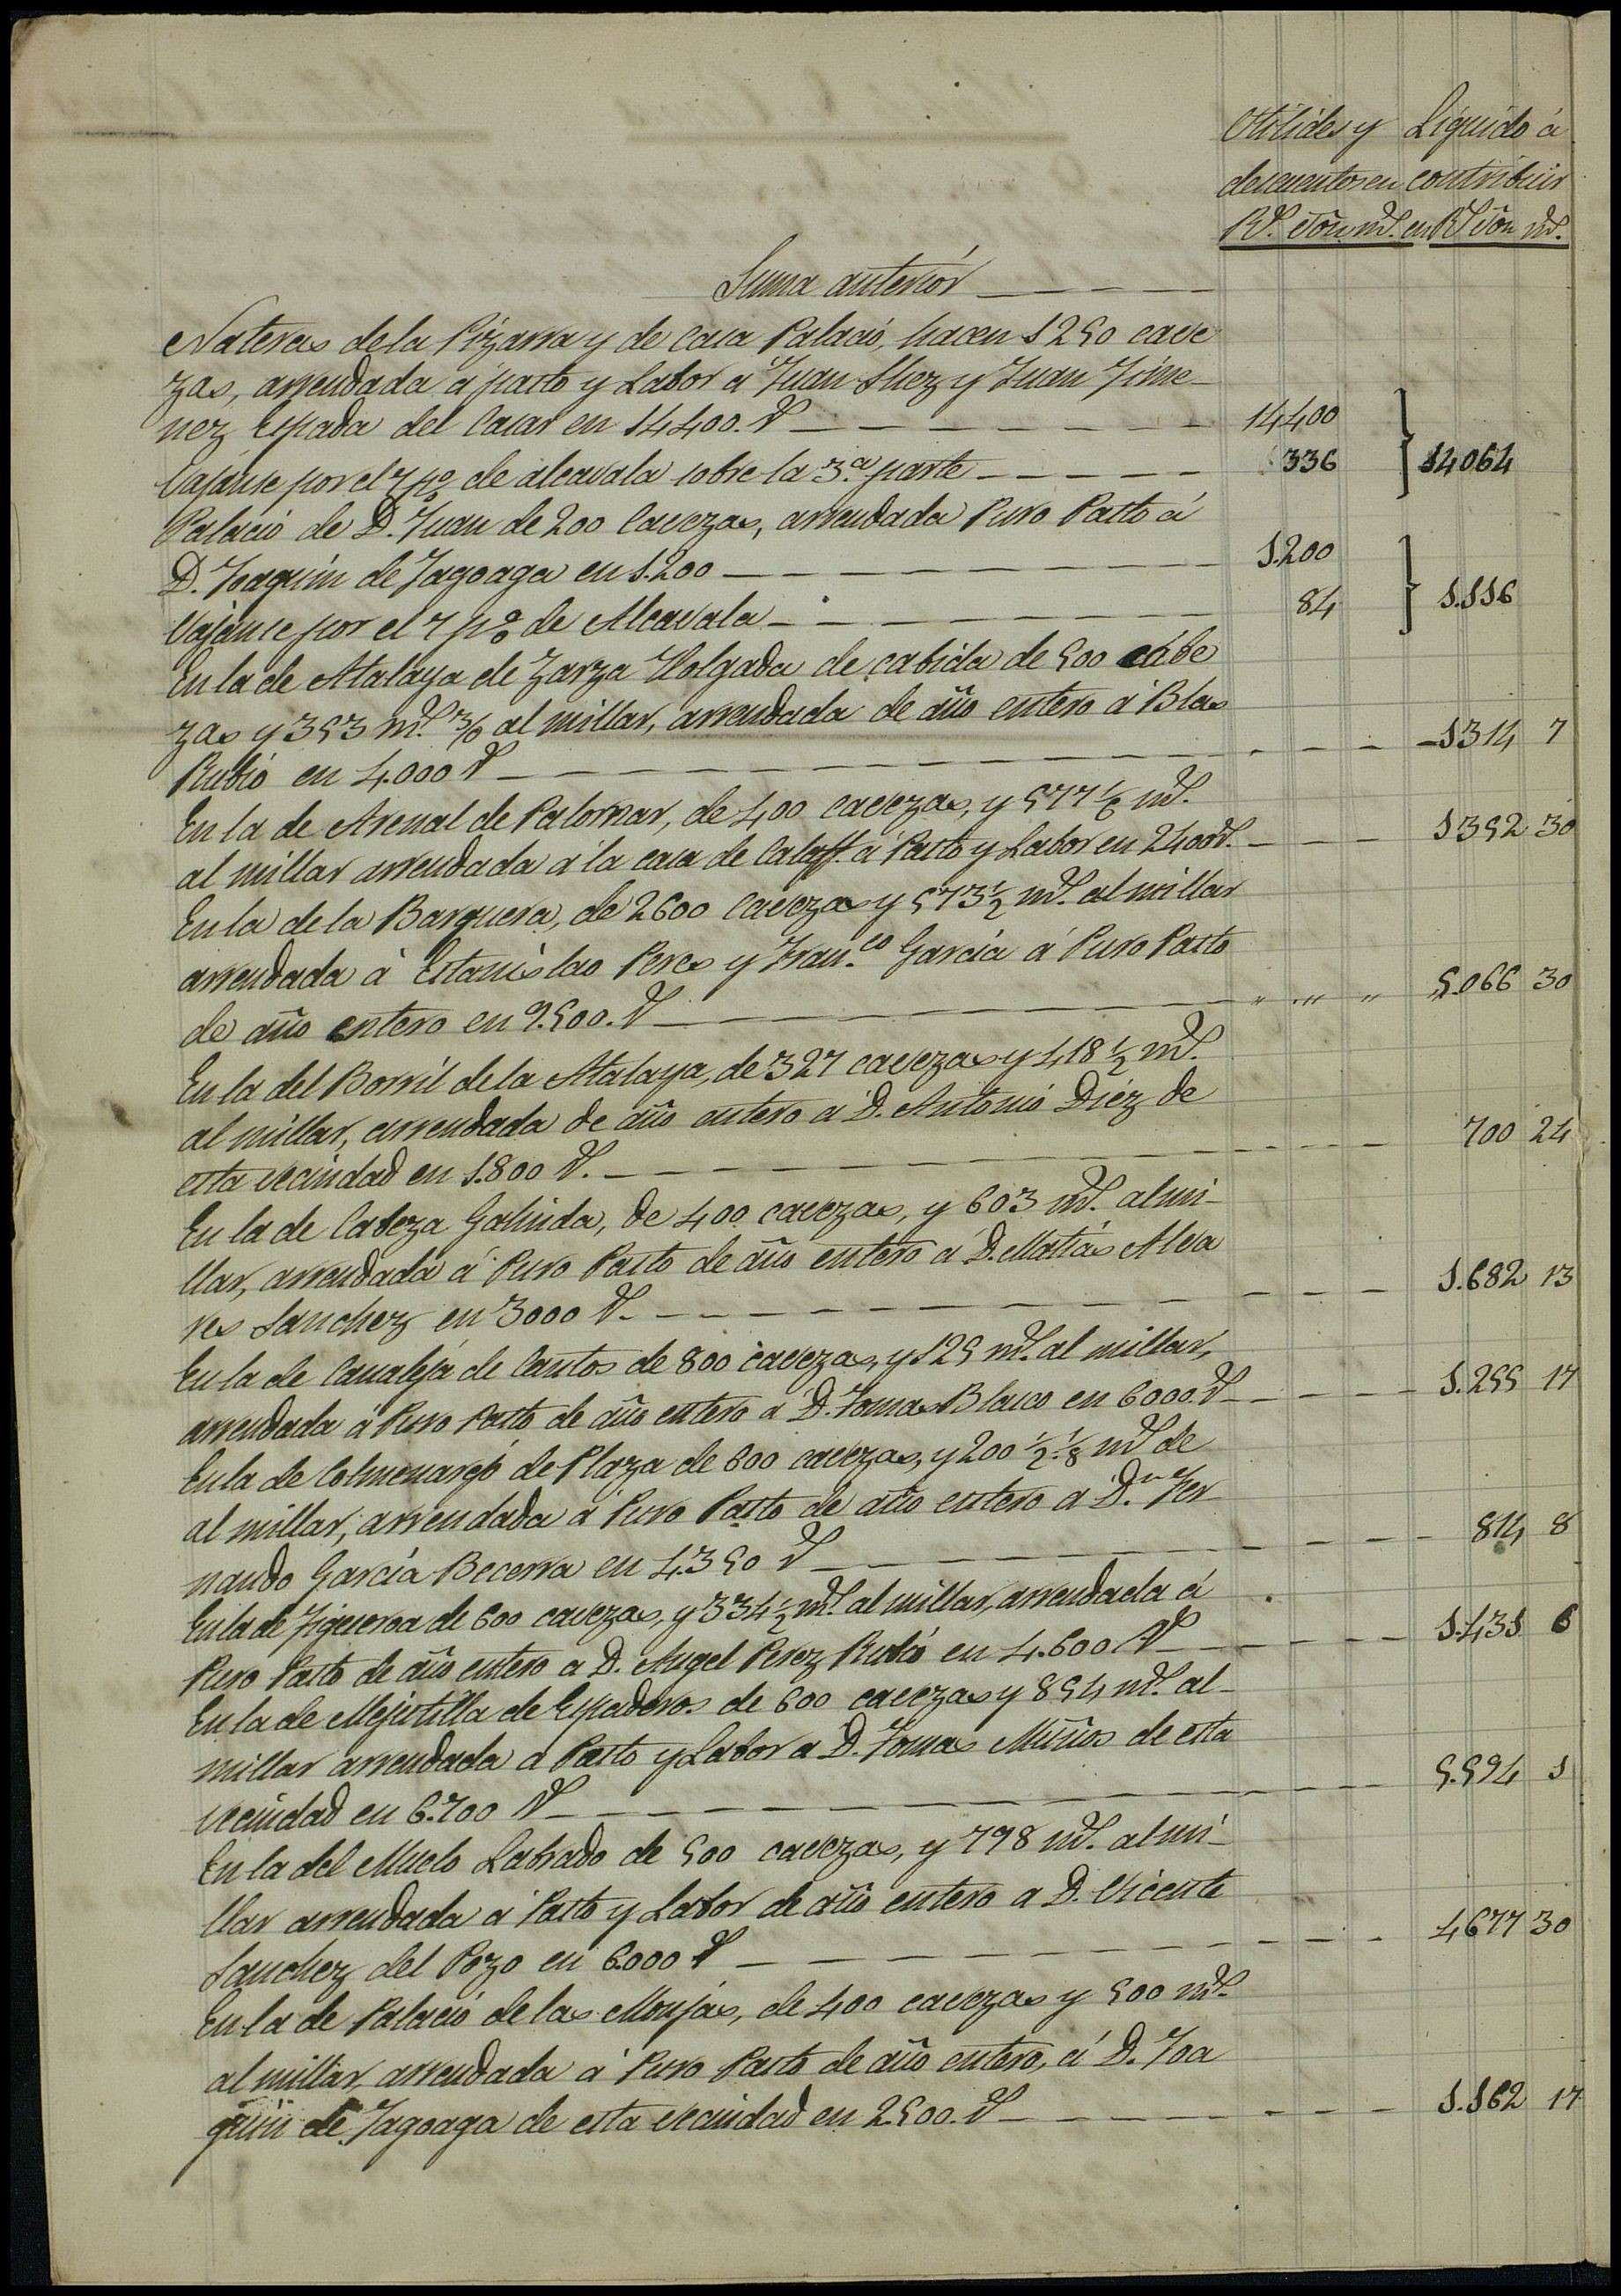 Utilides y Liquido á
descuentos en contribuir
Rs. von ms. en Rs von ms.
Suma anterior
Nateras de la Pizarra y de Casa Palacio, hacen 1250 cave
zas, arrendada a pasto y Labor a Juan Shez y Juan Jime-
nez Espada del Casar en 14400. rs 14400
Vajanse por el 7 p% de alcavala sobre la 3.a parte 336 } 14064
Palacio de D. Juan de 200 Cavezas, arrendada Puro Pasto á
D. Joaquin de Jagoaga en 1.200 1.200
Vajanse por el 7 p% de Alcavala 84 } 1.116
En la de Atalaya de Zarza Holgada de cabida de 500 cabe
zas y 353 ms. al millar, arrendada de año entero a Blas
Rubio en 4.000 rs 1314 7
En la de Arenal de Palomar, de 400 cavezas, y 577 1/6 ms.
al millar arrendada a la casa de Calaff. a Pasto y Labor en 2400 rs. 1352 30
En la de la Barquera, de 2600 Cavezas y 573 1/2 ms. al millar
arrendada á Estanislao Peres y Fran.co Garcia á Puro Pasto
de año entero en 9.500. rs 5.066 30
En la del Borril de la Atalaya, de 327 cavezas y 418 1/2 ms.
al millar, arrendada de año entero a D. Antonio Diez de
esta vecindad en 1.800 rs. 700 24
En la de Cabeza Galinda, de 400 cavezas, y 603 ms. al mi-
llar, arrendada á Puro Pasto de año entero a D. Matias Alva
res Sanchez en 3000 rs. 1.682 13
En la de Canaleja de Cantos de 800 cavezas, y 125 ms. al millar,
arrendada á Puro Pasto de año entero á D. Tomas Blasco en 6000. rs 1.255 17
En la de Colmenarejo de Plaza de 600 cavezas, y 200 1/2 1/8 ms de
al millar, arrendada á Puro Pasto de año entero a D.n Fer
nando Garcia Becerra en 4.350 rs 814 8
En la de Figueroa de 600 cavezas, y 334 1/2 ms. al millar, arrendada á
Puro Pasto de año entero a D. Angel Perez Rubio en 4.600 rs 1.431 6
En la de Mejostilla de Espaderos de 600 cavezas y 854 ms. al-
millar arrendada a Pasto y Labor a D. Tomas Muños de esta
vecindad en 6.700 rs 5.594 1
En la del Muelo Labrado de 500 cavezas, y 798 ms. al mi-
llar arrendada á Pasto y Labor de año entero a D. Vicente
Sanchez del Pozo en 6.000 rs 4677 30
En la de Palacio de las Monjas, de 400 cavezas y 500 ms.
al millar, arrendada á Puro Pasto de año entero, á D. Joa
quin de Jagoaga de esta vecindad en 2.500. rs 1.162 17